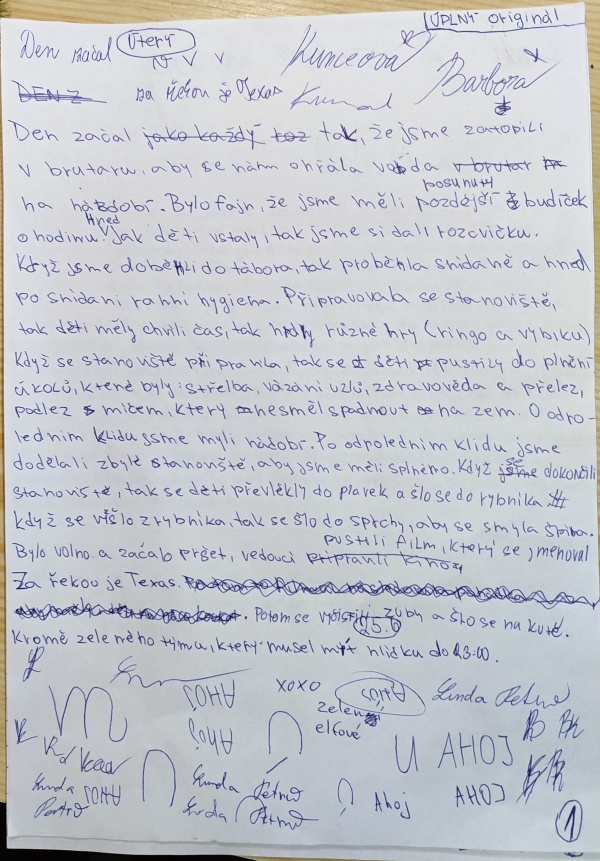 ÚPLNÝ originál
Den začal Úterý
Kunceova
Barbora
DEN Z za řekou je Texas
Den začal jako každý tak, že jsme zatopili
v brutaru, aby se nám ohřála voda v brutar
na nádobí. Bylo fajn, že jsme měli pozdější posunutý budíček
o hodinu. Hned Jak děti vstaly, tak jsme si dali rozcvičku.
Když jsme doběhli do tábora, tak proběhla snídaně a hned
po snídani ranní hygiena. Připravovala se stanoviště,
tak děti měly chvíli čas, tak hrály různé hry (ringo a vybiku)
Když se stanoviště připravila, tak se děti pustily do plnění
úkolů, které byly: střelba, vázání uzlů, zdravověda a přelez,
podlez s míčem, který nesměl spadnout na zem. O odpo-
ledním klidu jsme myli nádobí. Po odpoledním klidu jsme
dodělali zbylé stanoviště, aby jsme měli splněno. Když jsme se dokončili
stanoviště, tak se děti převlékly do plavek a šlo se do rybníka
když se vyšlo z rybníka, tak se šlo do sprchy, aby se smyla špína.
Bylo volno a začalo pršet, vedoucí připravili kino, pustili film, který se jmenoval
Za řekou je Texas.
Potom se vyčistili zuby a šlo se na kutě.
25.6
Kromě zeleného týmu, který musel mýt hlídku do 23:00.
AHOJ
xoxo
AHOJ
Linda Petrů
Ahoj
zelený
elfové
U AHOJ
Linda
Petrů
AHOJ
Linda Petrů
Linda Petrů
Ahoj
AHOJ
1